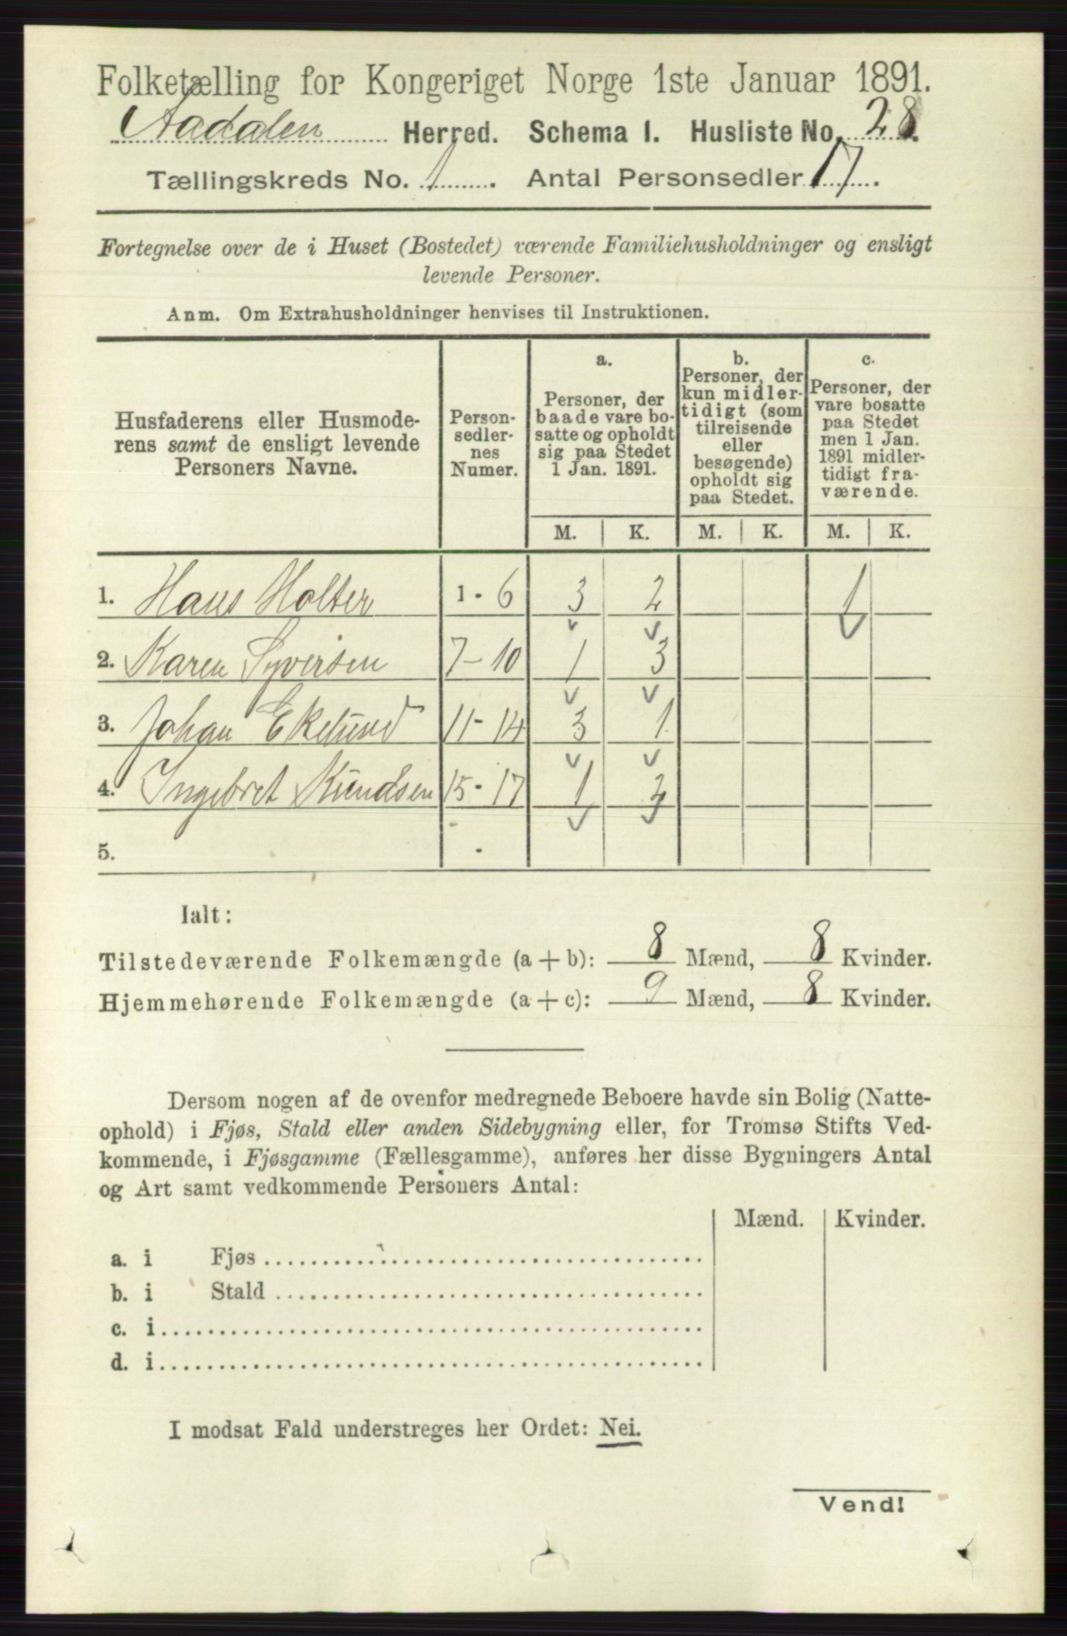 Folketælling for Kongeriget Norge 1ste Januar 1891.
Aadalen Herred. Schema I. Husliste No. 28.
Tællingskreds No. 1. Antal Personsedler 17.
Fortegnelse over de i Huset (Bostedet) værende Familiehusholdninger og ensligt
levende Personer.
Anm. Om Extrahusholdninger henvises til Instruktionen.
Husfaderens eller Husmode-
rens samt de ensligt levende
Personers Navne.
Person-
sedler-
nes
Numer.
a.
Personer, der
baade vare bo-
satte og opholdt
sig paa Stedet
1 Jan. 1891.
b.
Personer, der
kun midler-
tidigt (som
tilreisende
eller
besøgende)
opholdt sig
paa Stedet.
c.
Personer, der
vare bosatte
paa Stedet
men 1 Jan.
1891 midler-
tidigt fra-
værende.
M. K. M. K. M. K.
1. Hans Holter 1 - 6 3 2 1
2. Karen Syversen 7 - 10 1 3
3. Johan Ekelund 11 - 14 3 1
4. Ingebret Kundsen 15 - 17 1 2
5. -
Ialt:
Tilstedeværende Folkemængde (a + b): 8 Mænd, 8 Kvinder.
Hjemmehørende Folkemængde (a + c): 9 Mænd, 8 Kvinder.
Dersom nogen af de ovenfor medregnede Beboere havde sin Bolig (Natte-
ophold) i Fjøs, Stald eller anden Sidebygning eller, for Tromsø Stifts Ved-
kommende, i Fjøsgamme (Fællesgamme), anføres her disse Bygningers Antal
og Art samt vedkommende Personers Antal:
Mænd. Kvinder.
a. i Fjøs
b. i Stald
c. i
d. i
I modsat Fald understreges her Ordet: Nei.
Vend!